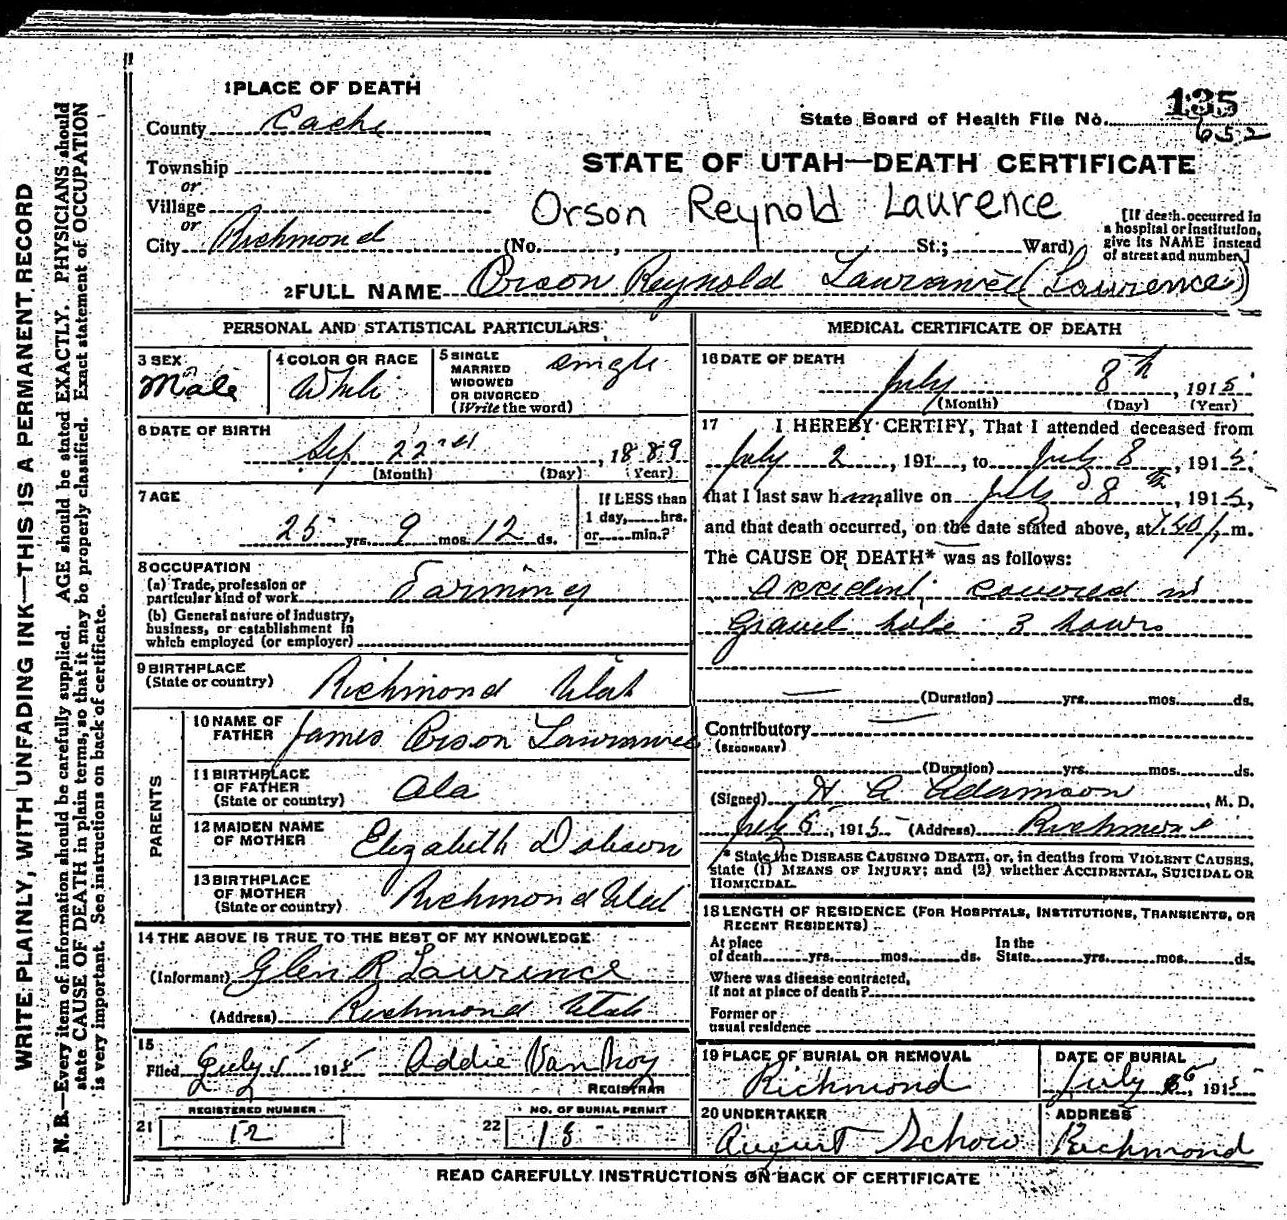 WRITE PLAINLY, WITH UNFADING INK—THIS IS A PERMANENT RECORD
N. B.—Every item of information should be carefully supplied. AGE should be stated EXACTLY. PHYSICIANS should
state CAUSE OF DEATH in plain terms, so that it may be properly classified. Exact statement of OCCUPATION
is very important. See instructions on back of certificate.
1 PLACE OF DEATH
County Cache
Township
or
Village
or
City Richmond
State Board of Health File No. 135
652
STATE OF UTAH—DEATH CERTIFICATE
Orson Reynold Laurence
(No. , St.; Ward)
[If death occurred in
a hospital or institution,
give its NAME instead
of street and number.]
2 FULL NAME Orson Reynold Lawrance (Lawrence)
PERSONAL AND STATISTICAL PARTICULARS
3 SEX
Male
4 COLOR OR RACE
White
5 SINGLE
MARRIED
WIDOWED
OR DIVORCED
(Write the word)
single
6 DATE OF BIRTH
Sep 22nd, 1889
(Month) (Day) (Year)
7 AGE
25 yrs. 9 mos. 12 ds.
If LESS than
1 day, hrs.
or min.?
8 OCCUPATION
(a) Trade, profession or
particular kind of work Farming
(b) General nature of industry,
business, or establishment in
which employed (or employer)
9 BIRTHPLACE
(State or country) Richmond Utah
PARENTS
10 NAME OF
FATHER James Orson Lawrance
11 BIRTHPLACE
OF FATHER
(State or country) Ala
12 MAIDEN NAME
OF MOTHER Elizabeth Dobson
13 BIRTHPLACE
OF MOTHER
(State or country) Richmond Utah
14 THE ABOVE IS TRUE TO THE BEST OF MY KNOWLEDGE
(Informant) Glen R Lawrence
(Address) Richmond Utah
15
Filed July 5 1915 Addie Van Noy
REGISTRAR
21 REGISTERED NUMBER
12
22 NO. OF BURIAL PERMIT
18
MEDICAL CERTIFICATE OF DEATH
16 DATE OF DEATH
July 8th, 1915
(Month) (Day) (Year)
17 I HEREBY CERTIFY, That I attended deceased from
July 2, 191 , to July 8, 1915,
that I last saw him alive on July 8th, 1915,
and that death occurred, on the date stated above, at m.
The CAUSE OF DEATH* was as follows:
Accident, covered in
Gravel hole 3 hours
(Duration) yrs. mos. ds.
Contributory
(SECONDARY)
(Duration) yrs. mos. ds.
(Signed) H A Adamson, M. D.
July 5, 1915 (Address) Richmond
* State the DISEASE CAUSING DEATH, or, in deaths from VIOLENT CAUSES,
state (1) MEANS OF INJURY; and (2) whether ACCIDENTAL, SUICIDAL OR
HOMICIDAL.
18 LENGTH OF RESIDENCE (FOR HOSPITALS, INSTITUTIONS, TRANSIENTS, OR
RECENT RESIDENTS)
At place
of death yrs. mos. ds.
In the
State yrs. mos. ds.
Where was disease contracted,
if not at place of death?
Former or
usual residence
19 PLACE OF BURIAL OR REMOVAL
Richmond
DATE OF BURIAL
July 6, 1915
20 UNDERTAKER
August Schow
ADDRESS
Richmond
READ CAREFULLY INSTRUCTIONS ON BACK OF CERTIFICATE